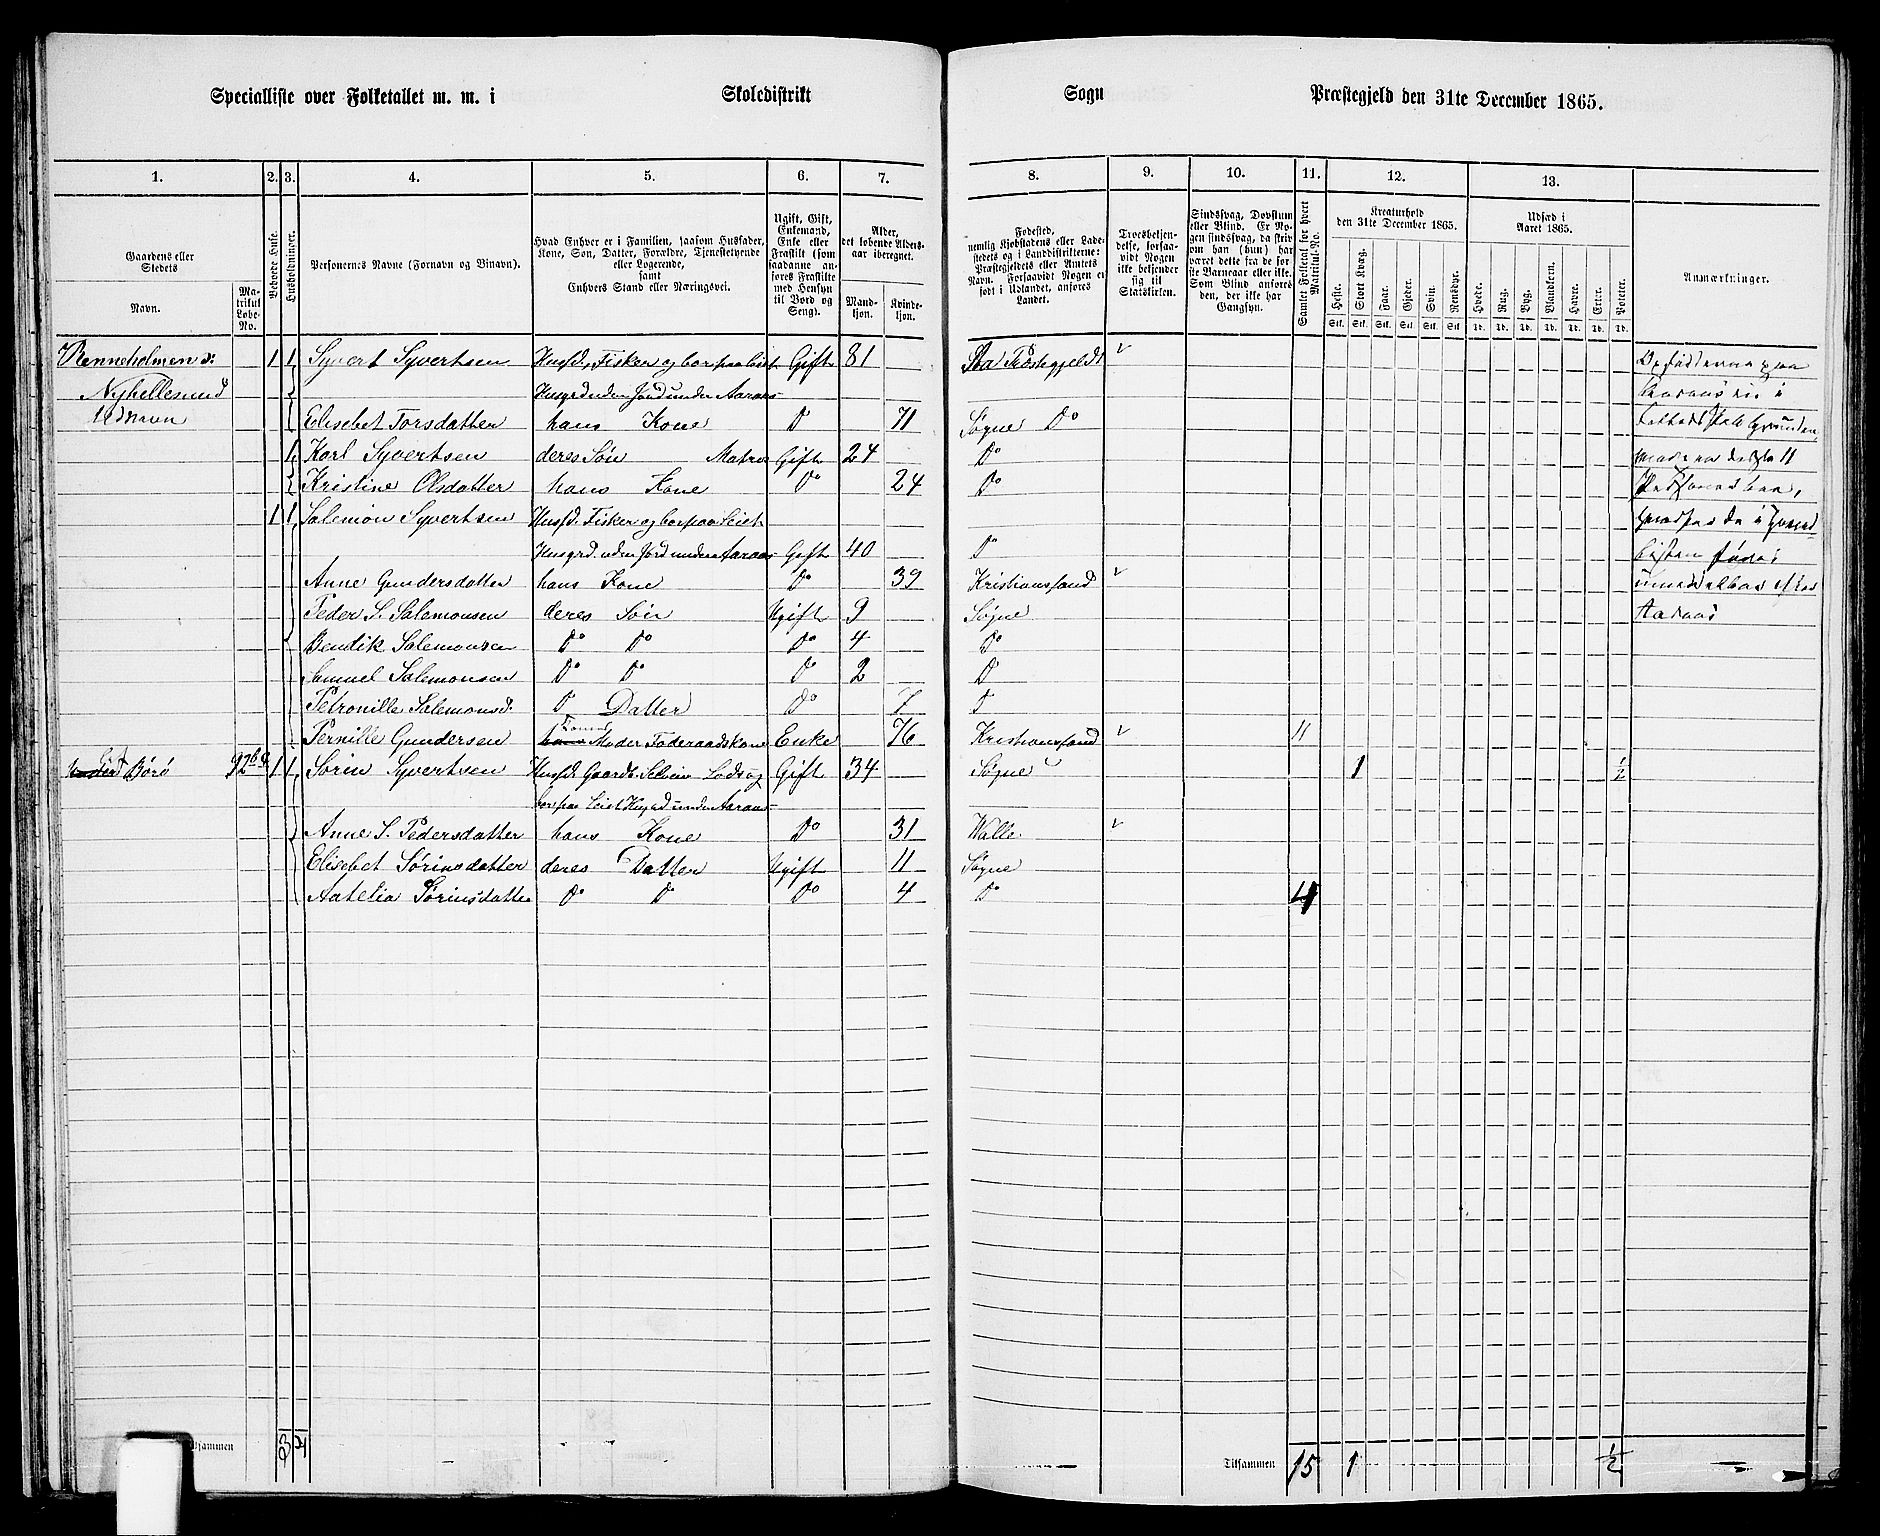 Specialliste over Folketallet m. m. i Skoledistrikt Sogn Præstegjeld den 31te December 1865.
1. 2. 3. 4. 5. 6. 7. 8. 9. 10. 11. 12. 13.
Gaardens eller Stedets
Navn.
Matrikul Løbe-No.
Beboede Huse.
Husholdninger.
Personernes Navne (Fornavn og Vinavn).
Hvad Enhver er i Familien, saasom Husfader, Kone, Søn, Datter, Forældre, Tjenestetyende eller Logerende,
samt
Enhvers Stand eller Næringsvei.
Ugift, Gift, Enkemand, Enke eller Fraskilt (som saadanne anføres Fraskilte med Hensyn til Bord og Seng).
Alder, det løbende Aldersaar iberegnet.
Mandkjøn.
Kvindekjøn.
Fødested,
nemlig Kjøbstadens eller Ladestedets og i Landdistrikterne: Præstegjeldets eller Amtets Navn. Forsaavidt Nogen er født i Udlandet, anføres Landet.
Troesbekjendelse, forsaavidt Nogen ikke bekjender sig til Statskirken.
Sindssvag, Døvstum eller Blind. Er Nogen sindssvag, da skrives om han (hun) har været dette fra de første Barneaar eller ikke. Som Blind anføres den, der ikke har Gangsyn.
Samlet Folketal for hvert Matrikul-No.
Kreaturhold den 31te December 1865.
Heste. Stort Kvæg. Faar. Gjeder. Svin. Rensdyr.
Stk. Stk. Stk. Stk. Stk. Stk.
Udsæd i Aaret 1865.
Hvede. Rug. Byg. Blandkorn. Havre. Erter. Poteter.
Td. Td. Td. Td. Td. Td. Td.
Anmærkninger.
1 1 Syvert Syvertsen Husfd, Fisker og bor paa Leiet Gift 81
Nyhellesund Husgrd uden Jord under Aaraas
Udhavn Elisebet Torsdatter hans Kone D° 71 Søgne D°
1 Karl Syvertsen deres Søn Matros Gift 24 D°
Kristine Olsdatter hans Kone D° 24 D°
1 1 Salemon Syvertsen Husfd. Fisker og bor paa Leiet
Husgrd. uden Jord under Aaraas Gift 40 D°
Anne Gundersdatter hans Kone D° 39 Kristianssand
Peder S. Salemonsen deres Søn Ugift 9 Søgne
Bendik Salemonsen D° D° D° 4 D°
Samuel Salemonsen D° D° D° 2 D°
Petronille Salemonsd. D° Datter D° 7 D°
Pernille Gundersen Konens Moder Føderaadskone Enke 76 Kristianssand 11
Borø 92 1 1 Sørin Syvertsen Husfd. Gaardb. Selveier Lods og Gift 34 Søgne 1 1/2
bor paa Leiet Husgrd under Aaraas
Anne S. Pedersdatter hans Kone D° 31 Halle
Elisebet Sørinsdatter deres Datter Ugift 11 Søgne
Aatelia Sørinsdatter D° D° D° 4 D° 4
Tilsammen 3 4
Tilsammen 15 1 1/2
Aaraas